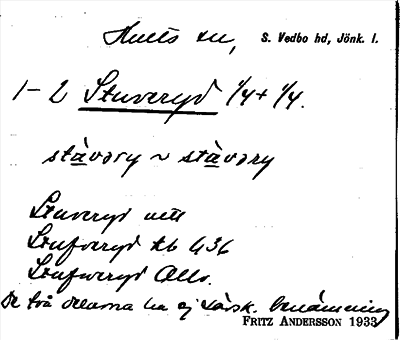 Hults sn, S. Vedbo hd, Jönk. l.
1-2 Stuveryd 1/4 + 1/4.
stàvəry ~ stàvəry
Stuveryd
Stufveryd Kb 436
Stufweryd Allo.
De två delarna ha ej särsk. benämning
FRITZ ANDERSSON 1933